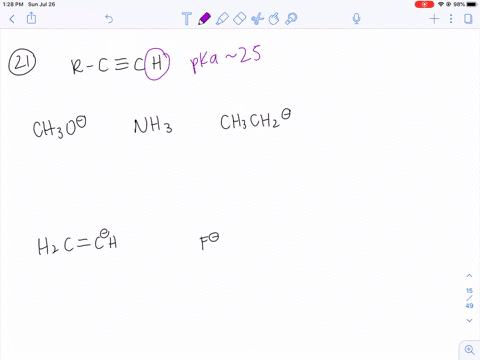 1:28 PM Sun Jul 26
98%
T
21 R-C≡CH pKa ~25
CH3O⊖ NH3 CH3CH2⊖
H2C=C⊖H F⊖
15
/
49